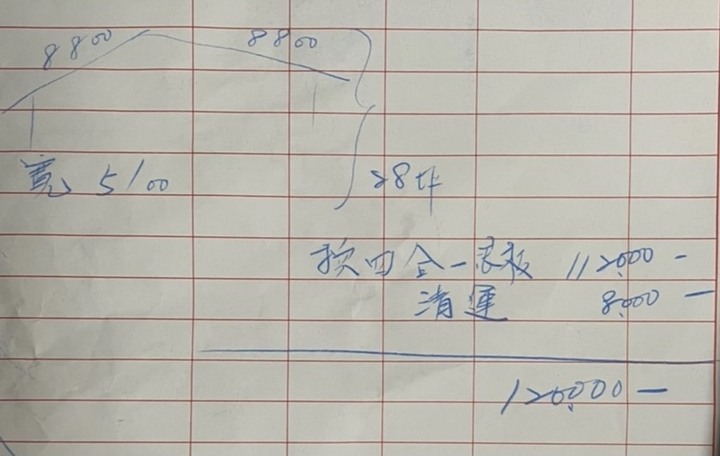 8800 8800
寬 5100
28坪
換四合一浪板 112000 -
清運 8,000 -
120,000 -